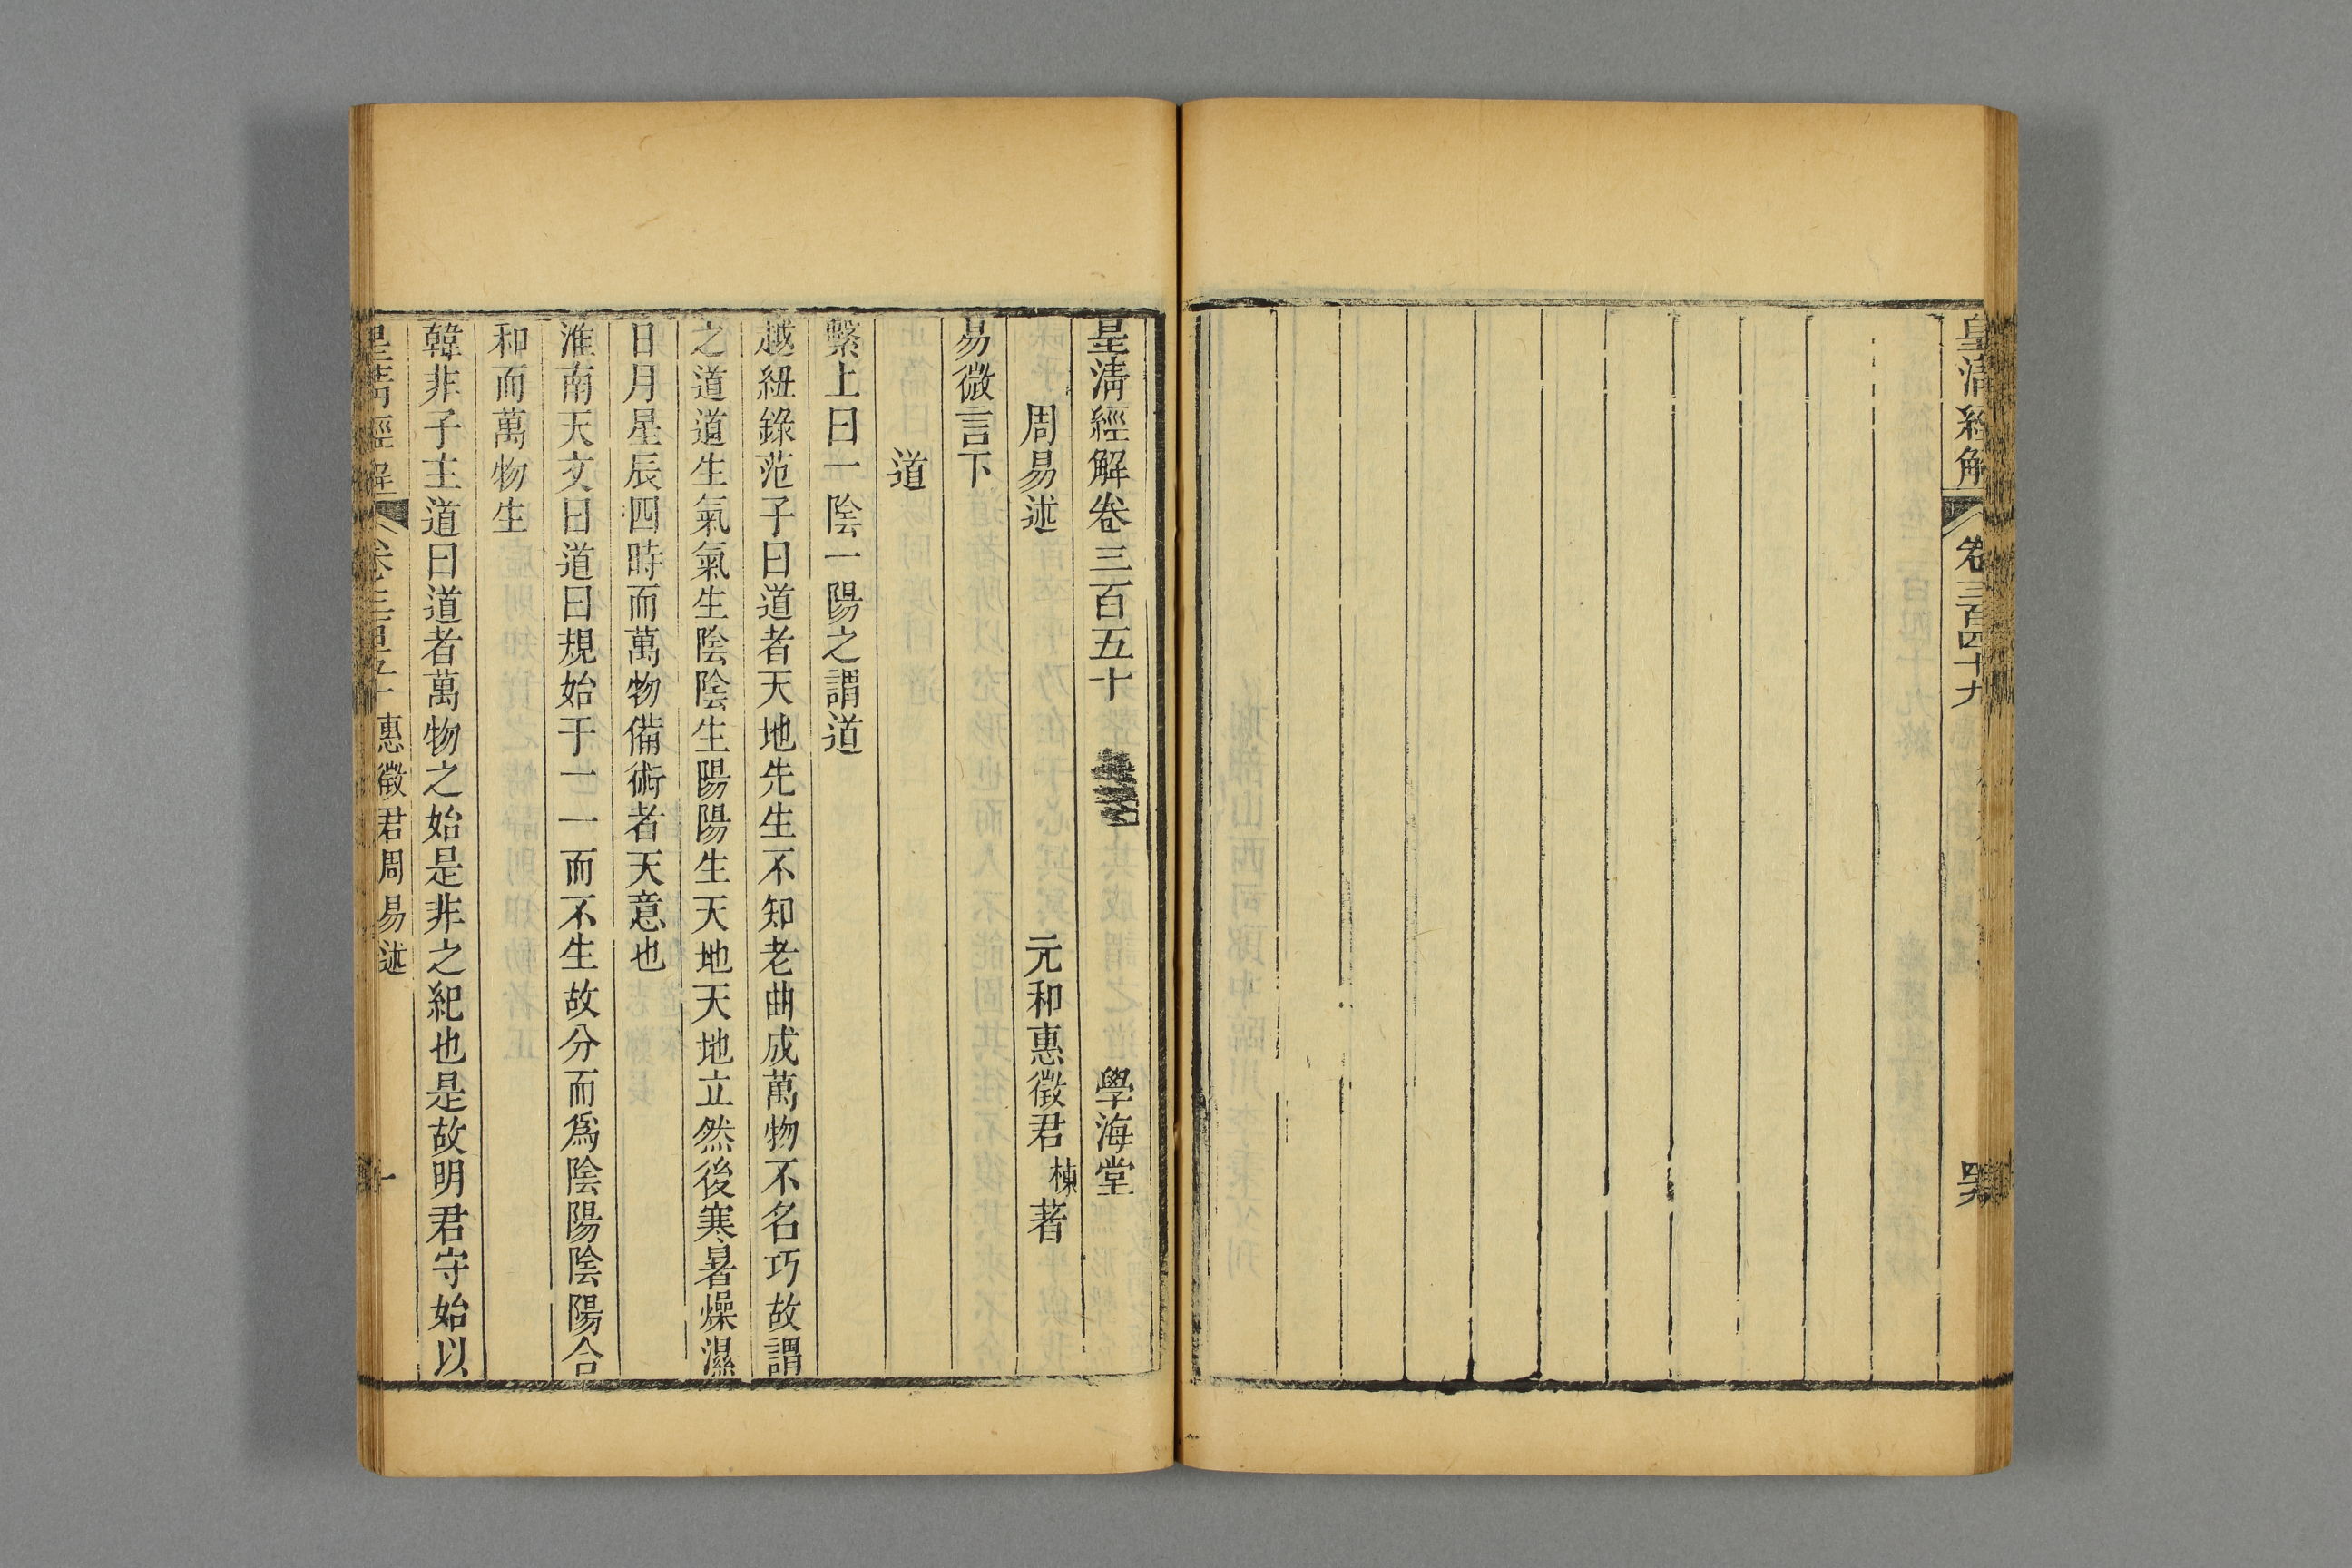 皇清經解
卷三百四十九
皇清經解卷三百五十
學海堂
周易述
元和惠徵君棟著
易微言下
道
繫上曰一陰一陽之謂道
越紐錄范子曰道者天地先生不知老曲成萬物不名巧故謂
之道道生氣氣生陰陰生陽陽生天地天地立然後寒暑燥濕
日月星辰四時而萬物備術者天意也
淮南天文曰道曰規始于一一而不生故分而爲陰陽陰陽合
和而萬物生
韓非子主道曰道者萬物之始是非之紀也是故明君守始以
皇清經解
卷三百五十
惠徵君周易述
一